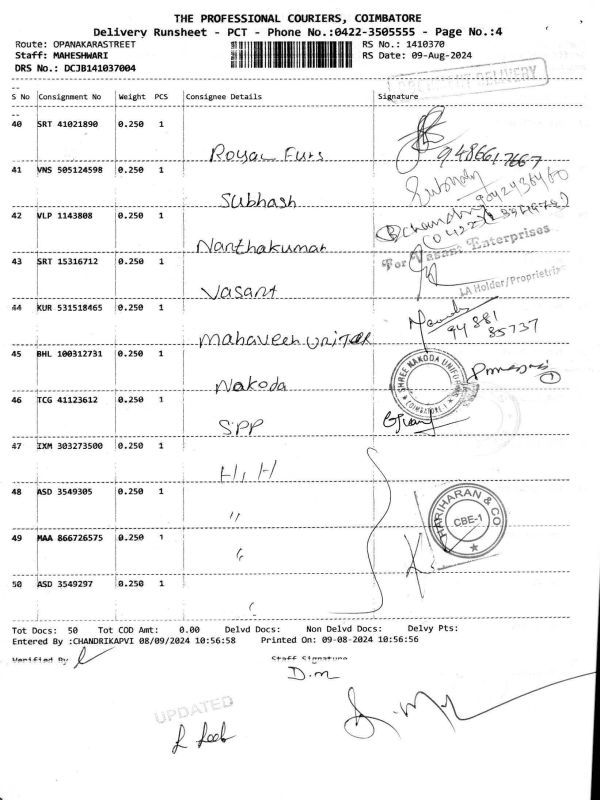 THE PROFESSIONAL COURIERS, COIMBATORE
Delivery Runsheet - PCT - Phone No.:0422-3505555 - Page No.:4
Route: OPANAKARASTREET RS No.: 1410370
Staff: MAHESHWARI RS Date: 09-Aug-2024
DRS No.: DCJB141037004
DELIVERY
S No Consignment No Weight PCS Consignee Details Signature
40 SRT 41021890 0.250 1
Royal Furs 9486617667
41 VNS 505124598 0.250 1
Subhash
42 VLP 1143808 0.250 1
Nanthakumar
43 SRT 15316712 0.250 1 For Vasant Enterprises
Vasant LA Holder/Proprietrix
44 KUR 531518465 0.250 1
94 881
85737
Mahaveer
45 BHL 100312731 0.250 1 SHREE NAKODA UNIFORMS
Nakoda COIMBATORE-1
46 TCG 41123612 0.250 1
SPP
47 IXM 303273500 0.250 1
H, H
48 ASD 3549305 0.250 1 HARIHARAN & CO
" CBE-1
49 MAA 866726575 0.250 1
50 ASD 3549297 0.250 1
Tot Docs: 50 Tot COD Amt: 0.00 Delvd Docs: Non Delvd Docs: Delvy Pts:
Entered By :CHANDRIKAPVI 08/09/2024 10:56:58 Printed On: 09-08-2024 10:56:56
Verified By Staff Signature
D.M
UPDATED